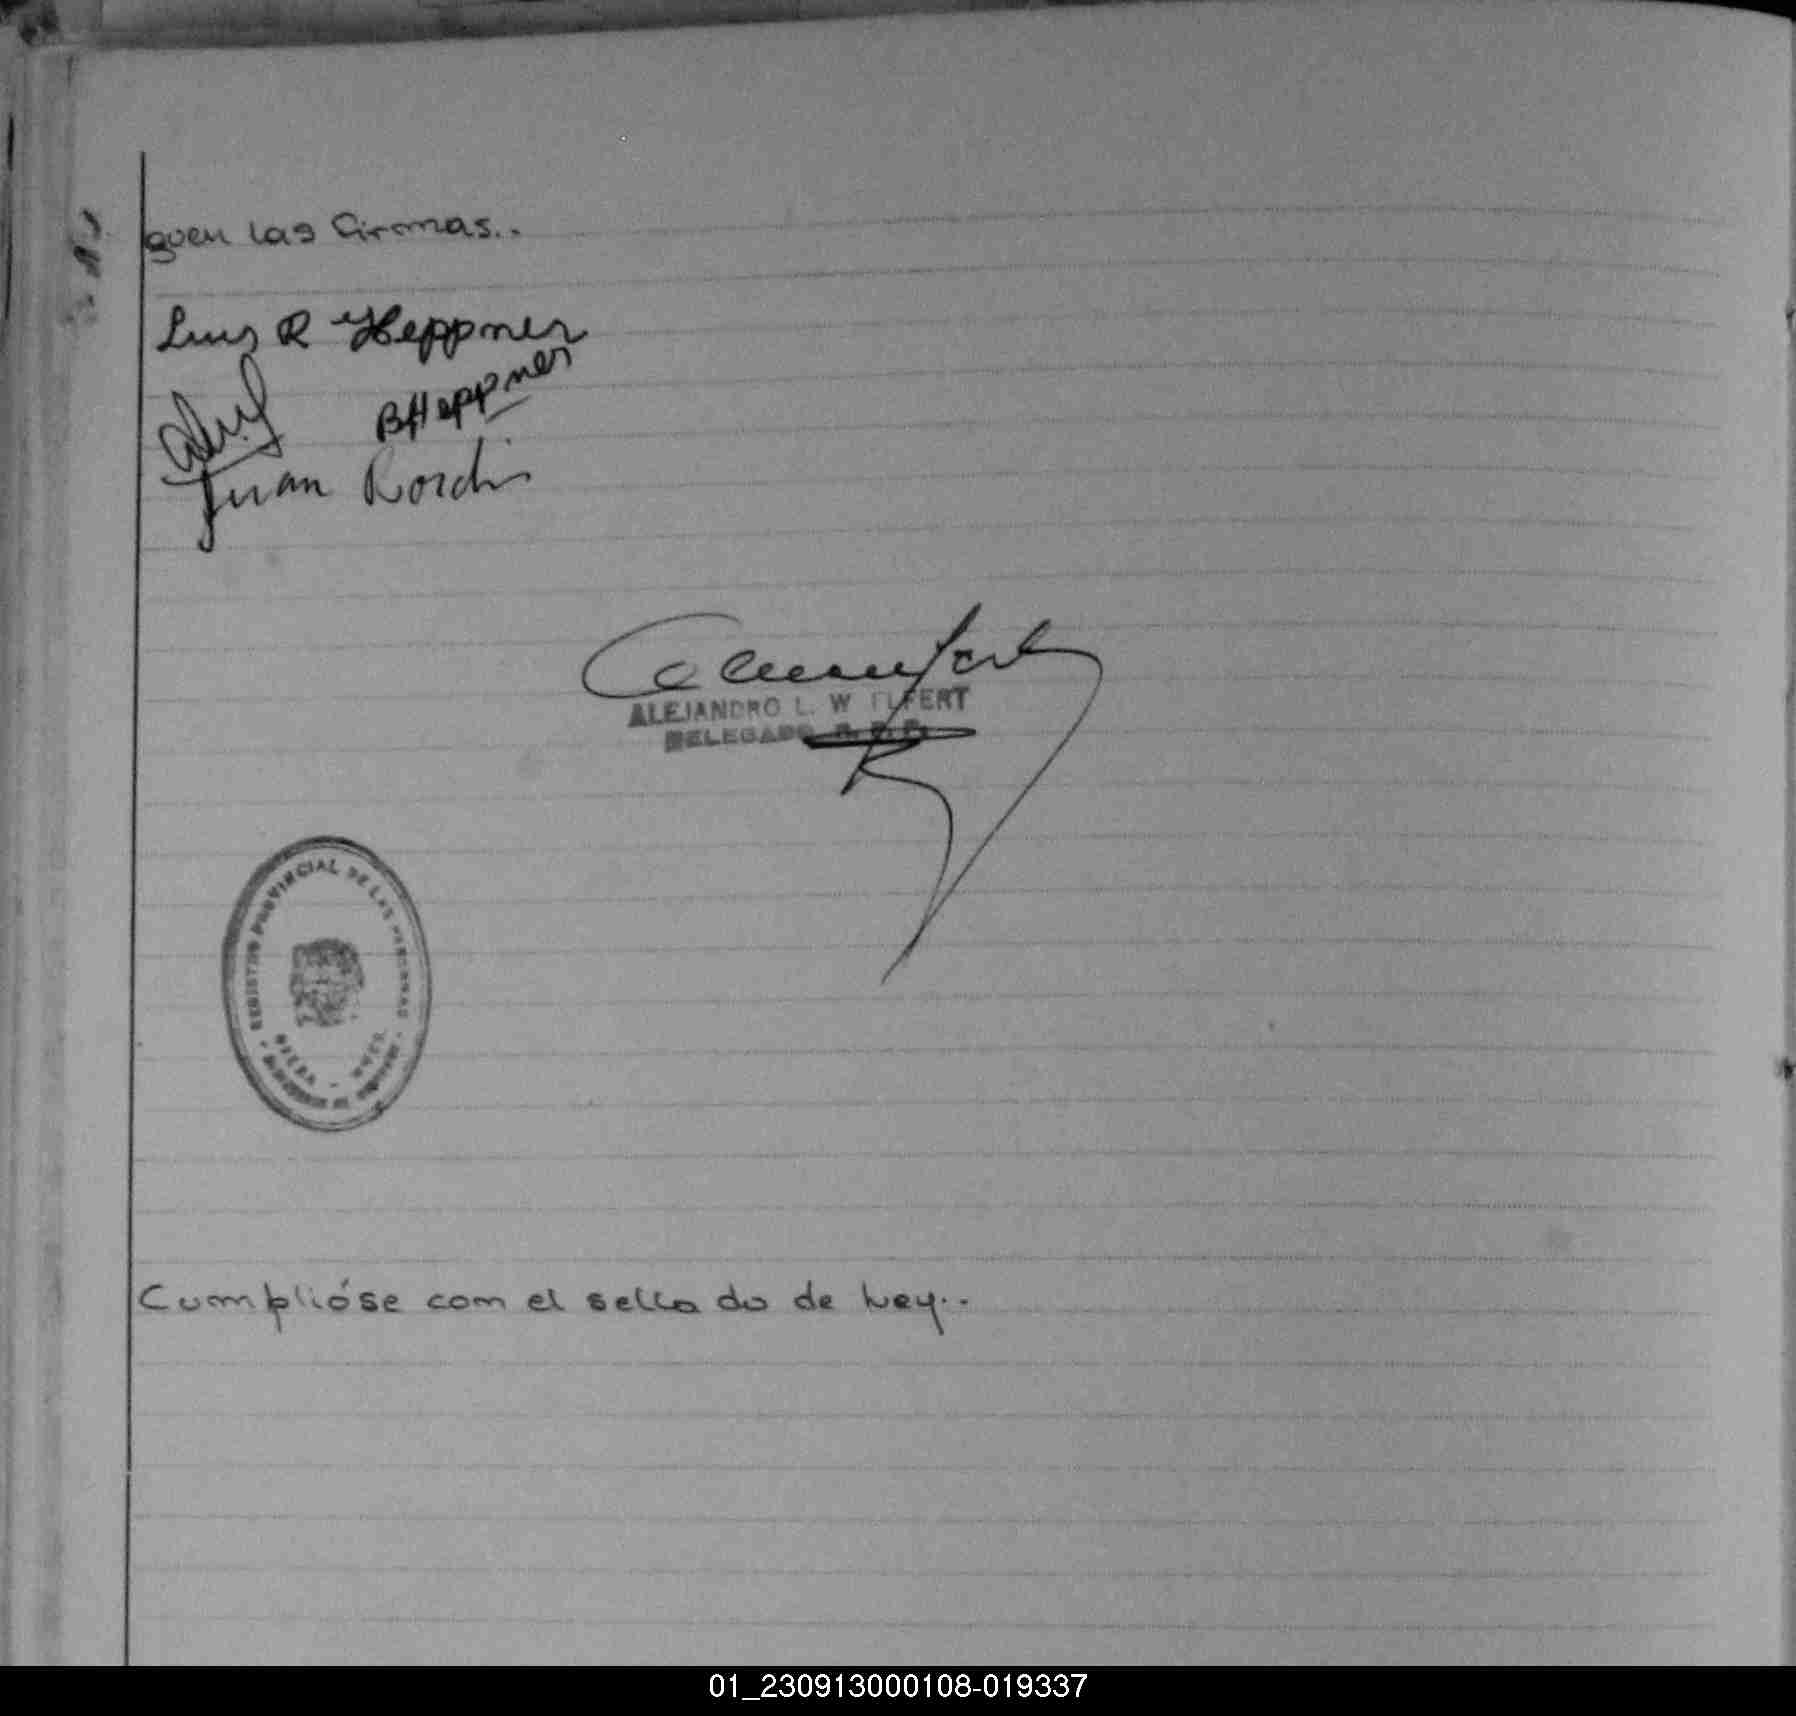 guen las firmas..
Luis R Heppner
BHeppner
Juan
ALEJANDRO L. W
DELEGADO
REGISTRO PROVINCIAL DE LAS PERSONAS
Cumplióse com el sellado de Ley..
01_230913000108-019337